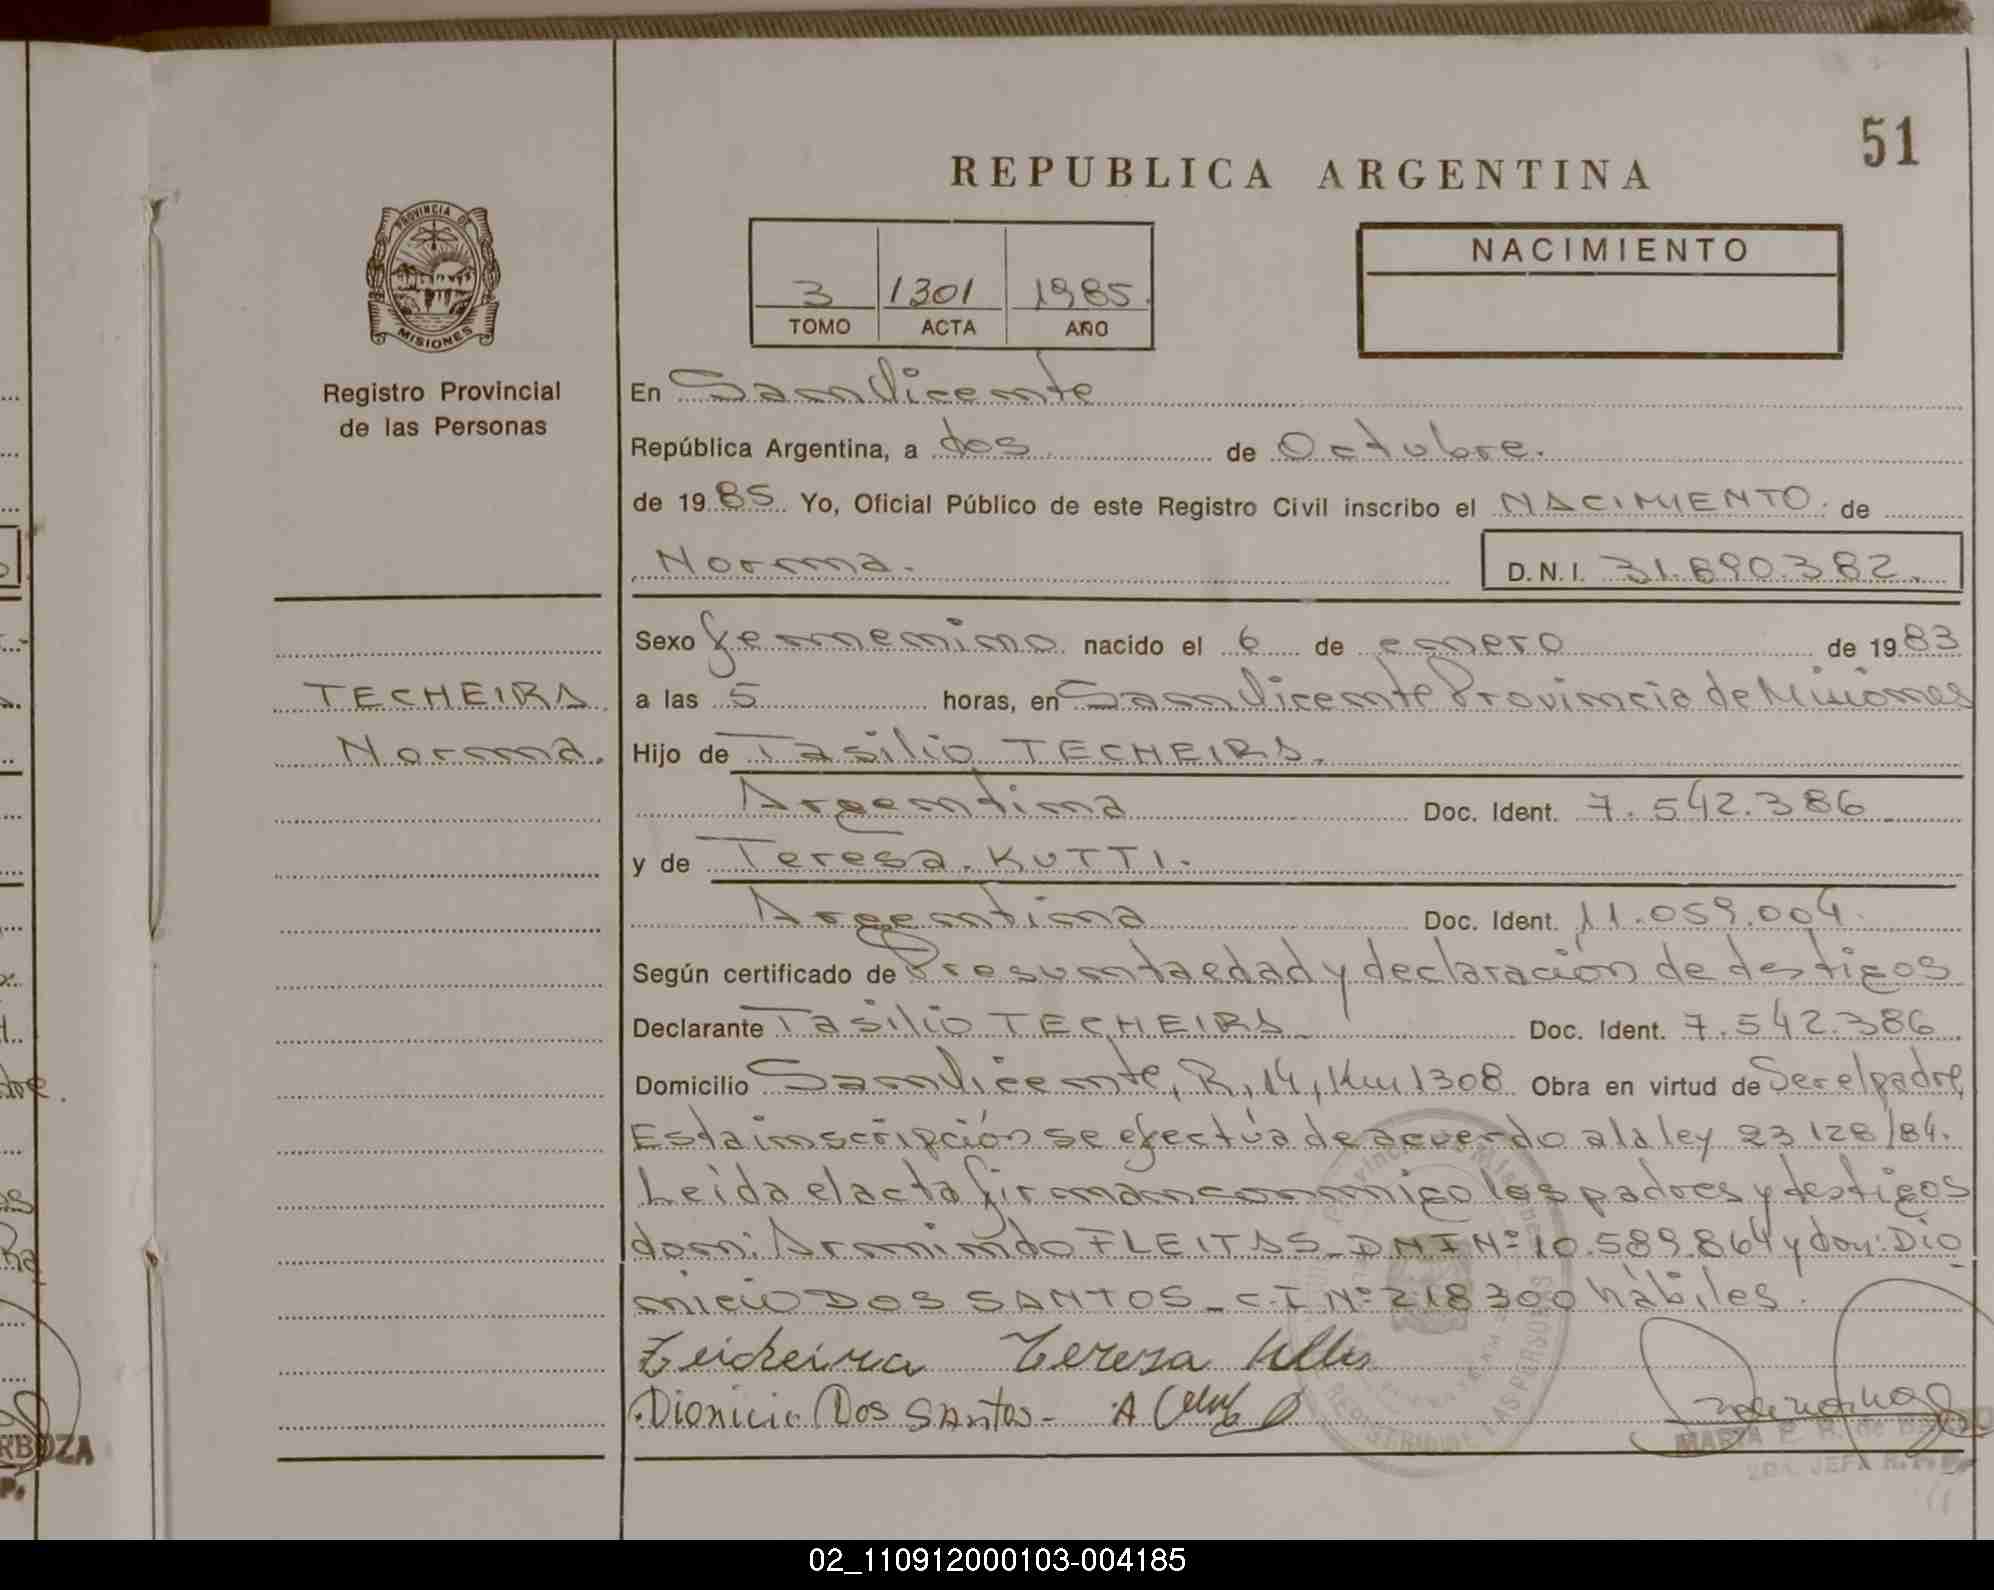 51
REPUBLICA ARGENTINA
PROVINCIA DE
MISIONES
Registro Provincial
de las Personas
TECHEIRA
Norma.
3 1301 1985.
TOMO ACTA AÑO
NACIMIENTO
En San Vicente
República Argentina, a dos de Octubre.
de 1985. Yo, Oficial Público de este Registro Civil inscribo el NACIMIENTO. de
Norma. D.N.I. 31.890.382.
Sexo femenino nacido el 6 de enero de 1983
a las 5 horas, en San Vicente Provincia de Misiones
Hijo de Tasilio TECHEIRA.
Argentina Doc. Ident. 7.542.386
y de Teresa. KUTTI.
Argentina Doc. Ident. 11.059.004.
Según certificado de Presunta edad y declaración de testigos
Declarante Tasilio TECHEIRA Doc. Ident. 7.542.386
Domicilio San Vicente, R, 14, Km 1308 Obra en virtud de Ser el padre,
Esta inscripción se efectúa de acuerdo a la ley 23128/84.
Leida el acta firman conmigo los padres y testigos
don: Armindo FLEITAS - DNI Nº 10.589.864 y don: Dio
nicio DOS SANTOS - C.I Nº 218300 hábiles.
Teicheira Tereza
Dionicio Dos Santos -
MARTA E. R. de
2DA. JEFA R.P.P.
RBOZA
P.
02_110912000103-004185